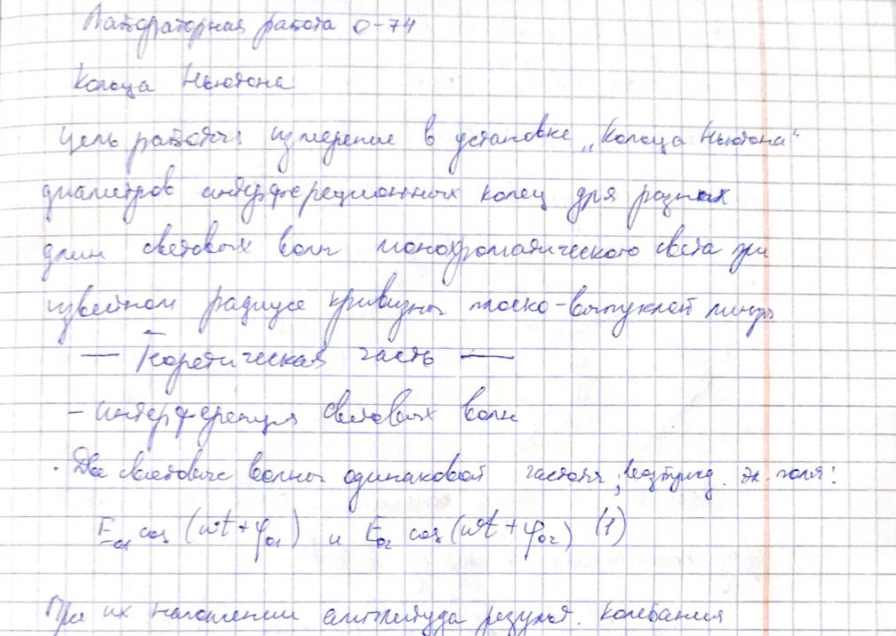 Лабораторная работа О-74
Кольца Ньютона
Цель работы: измерение в установке „Кольца Ньютона“
диаметров интерференционных колец для разных
длин световых волн монохроматического света при
известном радиусе кривизны плоско-выпуклой линзы
— Теоретическая часть —
- интерференция световых волн
· Две световые волны одинаковой частоты, возбужд. эл. поля:
E₀₁ cos (ωt + φ₀₁) и E₀₂ cos (ωt + φ₀₂) (1)
При их наложении амплитуда результ. колебания